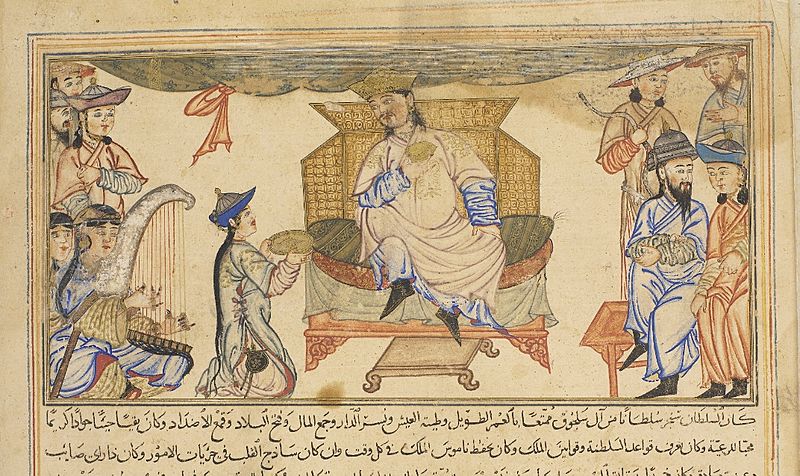 كان السلطان سنجر سلطانا من آل سلجوق ممتعا بالعمر الطويل وطيبة العيش وتيسر الدار وجمع المال وفتح البلاد وقمع الاضداد وكان نقيبا جوادا كريما
محبا للرعية وكان يعرف قواعد السلطنة وقوانين الملك وكان يحفظ ناموس الملك في كل وقت وان كان ساذج القلب في جزئيات الامور وكان ذا رأي صائب